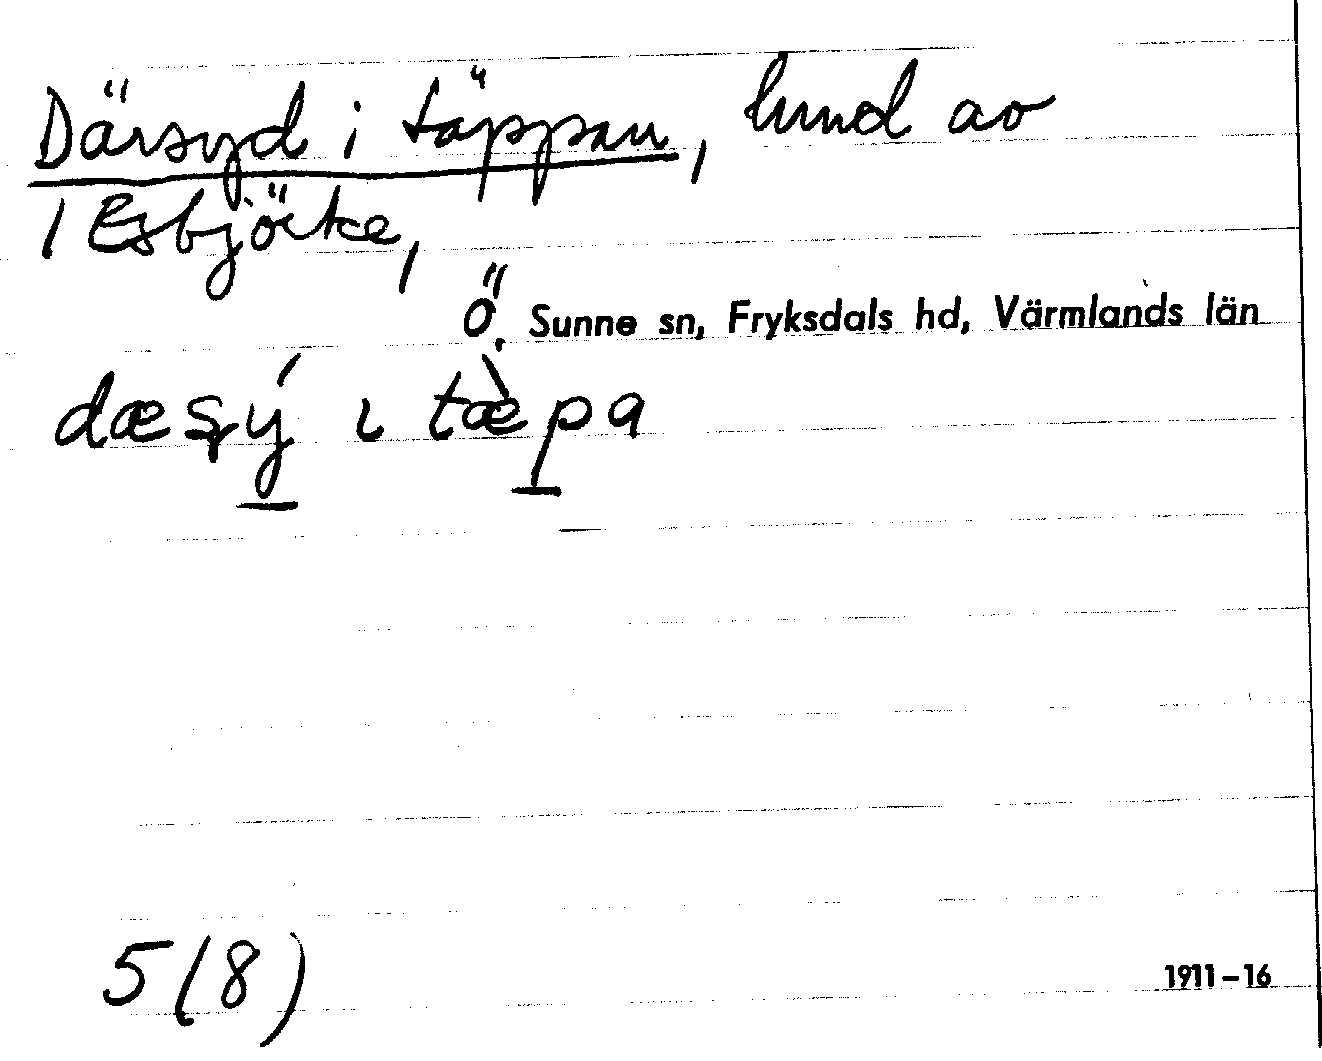 Därsyd i täppan, hund av
1 Esbjörke,
Ö. Sunne sn, Fryksdals hd, Värmlands län
dæʂý ɩ tæ̀pa
5(8)
1911–16